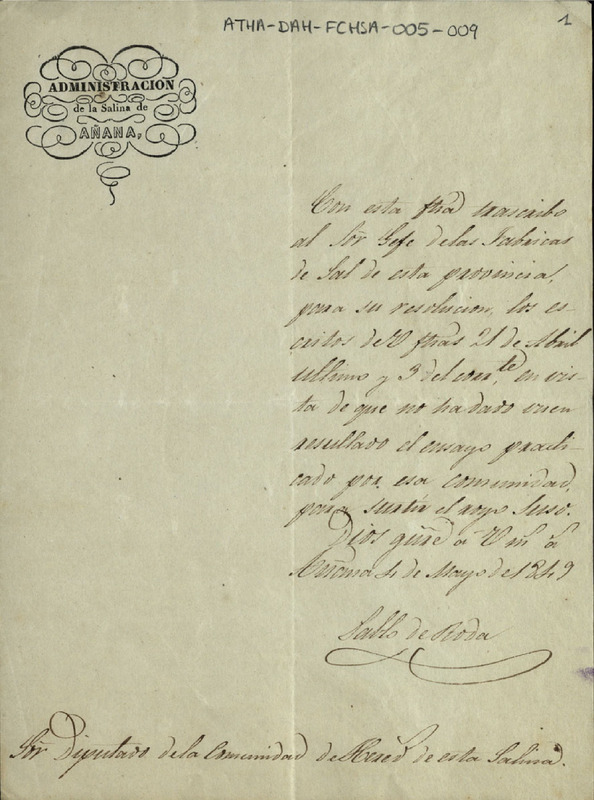 ATHA-DAH-FCHSA-005-009
1
ADMINISTRACION
de la Salina de
AÑANA,
Con esta fha trascribo
al Sor Gefe de las Fabricas
de Sal de esta provincia,
para su resolucion, los es-
critos de V fhas 21 de Abril
ultimo y 3 del corrte, en vis-
ta de que no ha dado buen
resultado el ensayo practi-
cado por esa comunidad,
para surtir el royo Suso.
Dios gũe á V ms as
Añana 4 de Mayo de 1849
Pablo de Roda
Sor Diputado de la Comunidad de Hered de esta Salina.